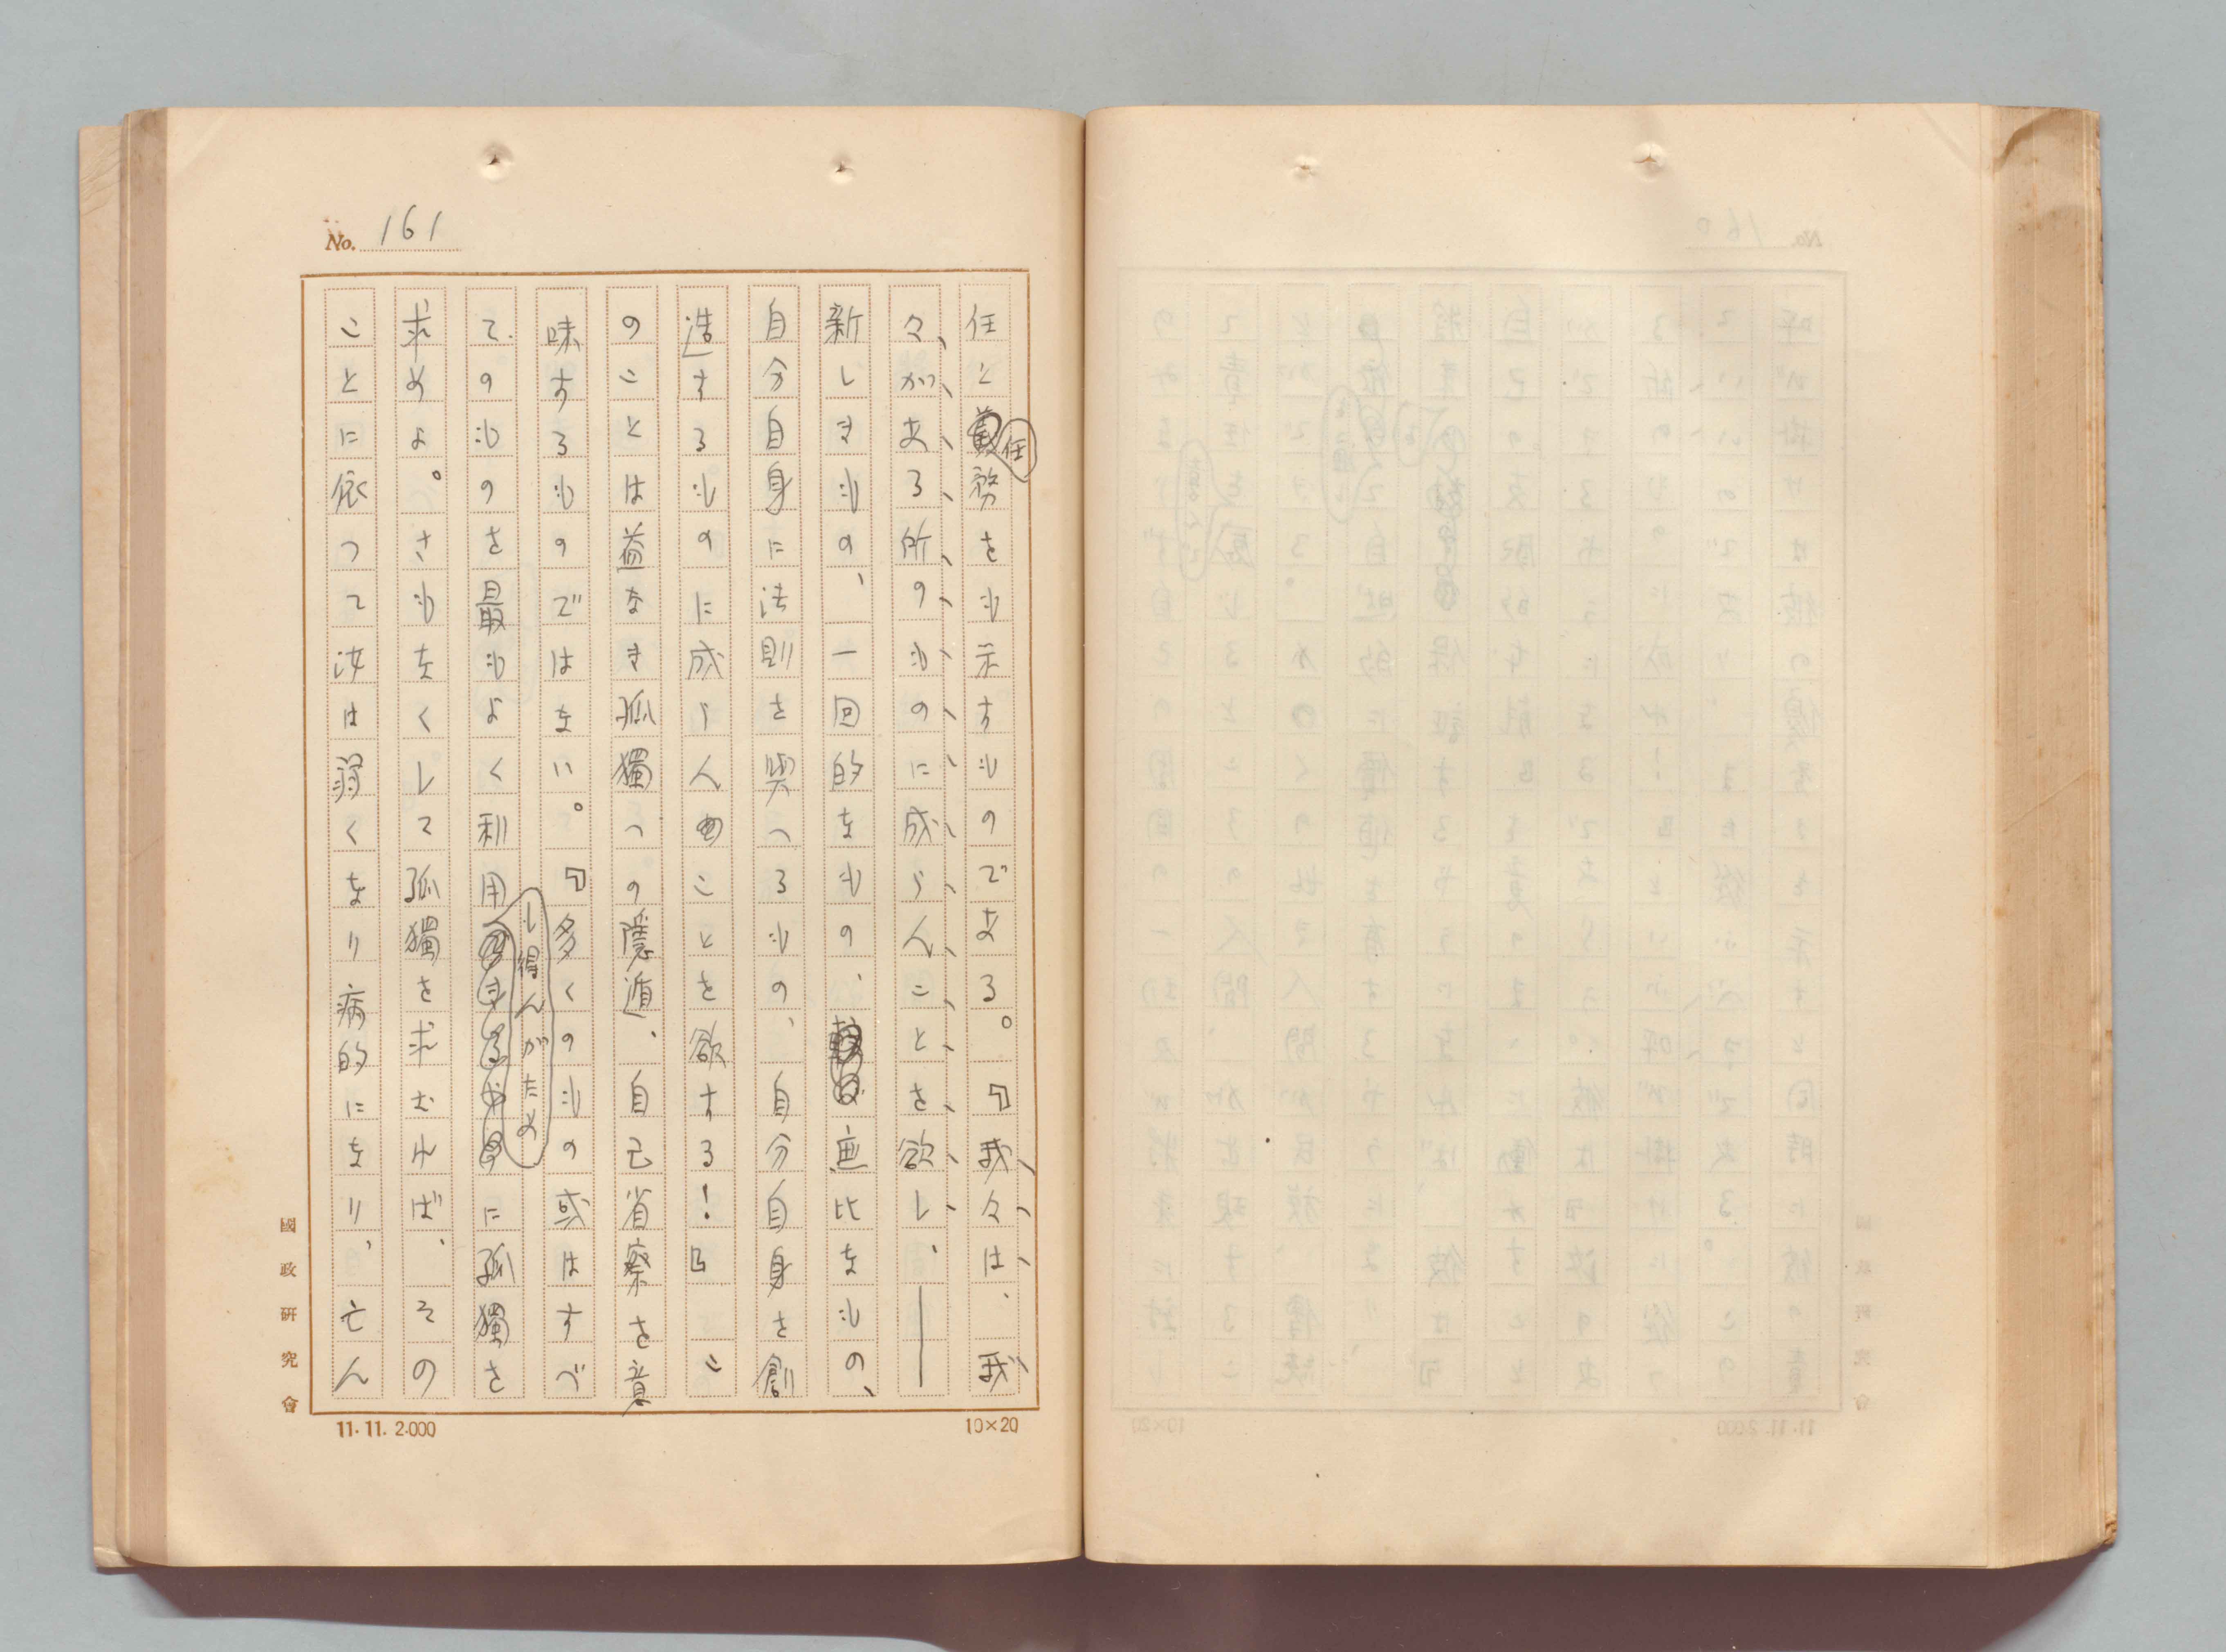 No. 161
任と任務をも示すものである。『我々は、我
々がある所のものに成らんことを欲し、――
新しきもの、一回的なもの、無比なもの、
自分自身に法則を與へるもの、自分自身を創
造するものに成らんことを欲する！』こ
のことは益なき孤獨への隱遁、自己省察を意
味するものではない。『多くのもの或はすべ
てのものを最もよく利用し得んがために孤獨を
求めよ。さもなくして孤獨を求むれば、その
ことに依つて汝は弱くなり病的になり、亡ん
國政研究會
11.11.2.000
10×20